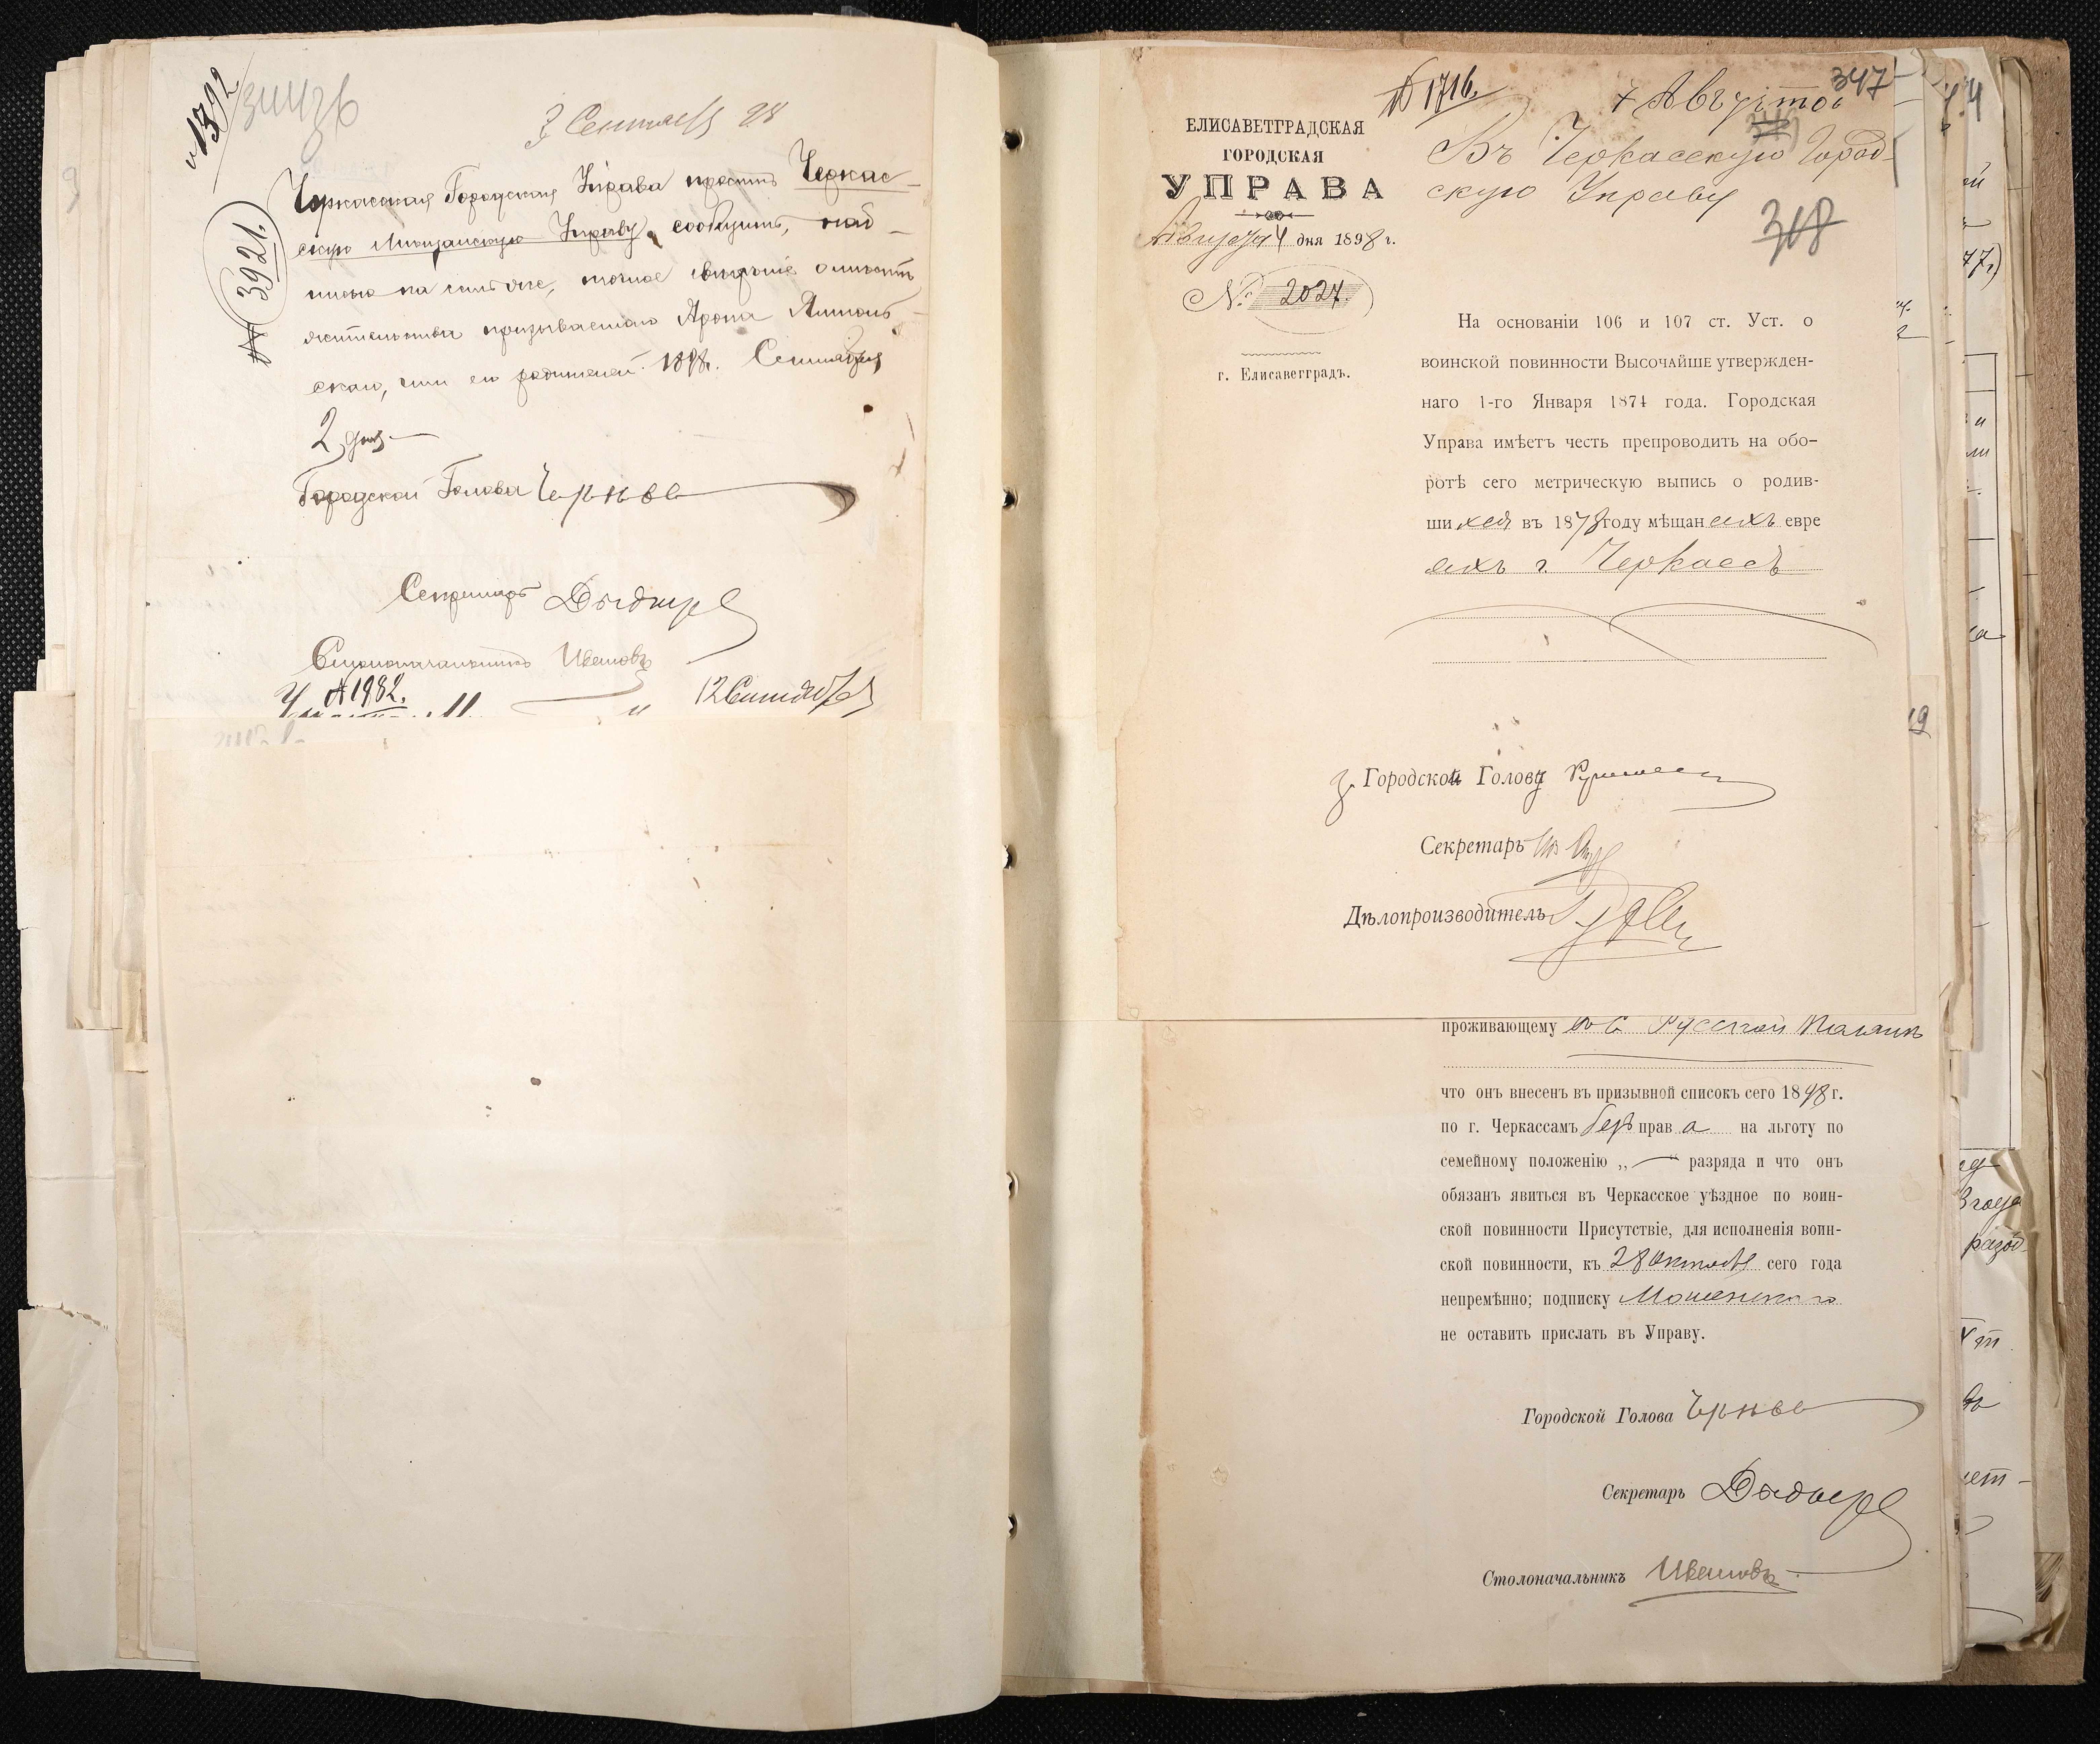 № 1392
3 Сентября 98
№ 3921.
Черкасская Городская Управа проситъ Черкас-
скую Мѣщанскую Управу сообщить, над-
писью на семъ же, точное свѣдѣніе о мѣстѣ
жительства призываемаго Арона
скаго, или его родителей. 1898 г. Сентября
2 дня
Городской Голова Чернѣв
Секретарь
Столоначальникъ Ивановъ
№ 1982.
12 Сентября
№ 1716.
7 Августа
347
ЕЛИСАВЕТГРАДСКАЯ
ГОРОДСКАЯ
УПРАВА
Августа 4 дня 1898 г.
№ 2024.
г. Елисаветградъ.
Въ Черкасскую Город-
скую Управу
348
На основаніи 106 и 107 ст. Уст. о
воинской повинности Высочайше утвержден-
наго 1-го Января 1874 года. Городская
Управа имѣетъ честь препроводить на обо-
ротѣ сего метрическую выпись о родив-
шихся въ 1878 году мѣщанахъ евре
яхъ г. Черкассъ
з. Городской Головы
Секретарь
Дѣлопроизводитель
проживающему въ с. Русской Поляне
что онъ внесенъ въ призывной списокъ сего 1898 г.
по г. Черкассамъ безъ права на льготу по
семейному положенію „—“ разряда и что онъ
обязанъ явиться въ Черкасское уѣздное по воин-
ской повинности Присутствіе, для исполненія воин-
ской повинности, къ 28 Октября сего года
непремѣнно; подписку Мошенского
не оставить прислать въ Управу.
Городской Голова Чернѣв
Секретарь
Столоначальникъ Ивановъ